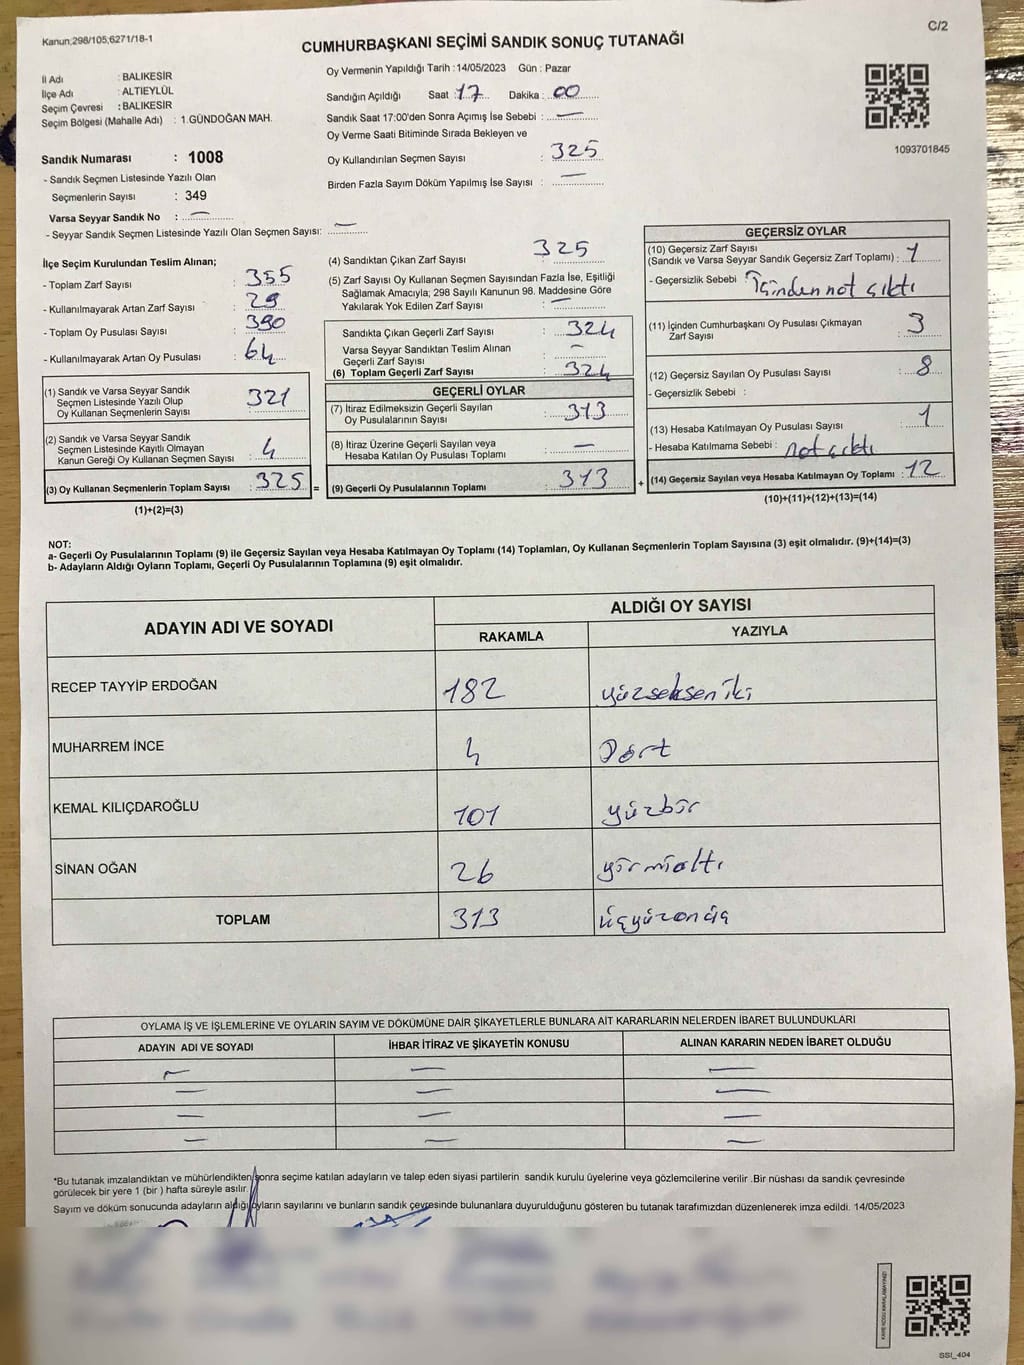 Kanun;298/105;6271/18-1
C/2
CUMHURBAŞKANI SEÇİMİ SANDIK SONUÇ TUTANAĞI
İl Adı : BALIKESİR
İlçe Adı : ALTIEYLÜL
Seçim Çevresi : BALIKESİR
Seçim Bölgesi (Mahalle Adı) : 1.GÜNDOĞAN MAH.
Oy Vermenin Yapıldığı Tarih :14/05/2023 Gün : Pazar
Sandığın Açıldığı Saat : 17 Dakika : 00
Sandık Saat 17:00'den Sonra Açımış İse Sebebi : —
Oy Verme Saati Bitiminde Sırada Bekleyen ve
Oy Kullandırılan Seçmen Sayısı : 325
Birden Fazla Sayım Döküm Yapılmış İse Sayısı : —
1093701845
Sandık Numarası : 1008
- Sandık Seçmen Listesinde Yazılı Olan
Seçmenlerin Sayısı : 349
Varsa Seyyar Sandık No : —
- Seyyar Sandık Seçmen Listesinde Yazılı Olan Seçmen Sayısı: —
İlçe Seçim Kurulundan Teslim Alınan;
- Toplam Zarf Sayısı : 355
- Kullanılmayarak Artan Zarf Sayısı : 29
- Toplam Oy Pusulası Sayısı : 390
- Kullanılmayarak Artan Oy Pusulası : 64
(1) Sandık ve Varsa Seyyar Sandık
Seçmen Listesinde Yazılı Olup
Oy Kullanan Seçmenlerin Sayısı : 321
(2) Sandık ve Varsa Seyyar Sandık
Seçmen Listesinde Kayıtlı Olmayan
Kanun Gereği Oy Kullanan Seçmen Sayısı : 4
(3) Oy Kullanan Seçmenlerin Toplam Sayısı : 325 =
(1)+(2)=(3)
(4) Sandıktan Çıkan Zarf Sayısı 325
(5) Zarf Sayısı Oy Kullanan Seçmen Sayısından Fazla İse, Eşitliği
Sağlamak Amacıyla; 298 Sayılı Kanunun 98. Maddesine Göre
Yakılarak Yok Edilen Zarf Sayısı : —
Sandıkta Çıkan Geçerli Zarf Sayısı : 324
Varsa Seyyar Sandıktan Teslim Alınan
Geçerli Zarf Sayısı : —
(6) Toplam Geçerli Zarf Sayısı : 324
GEÇERLİ OYLAR
(7) İtiraz Edilmeksizin Geçerli Sayılan
Oy Pusulalarının Sayısı : 313
(8) İtiraz Üzerine Geçerli Sayılan veya
Hesaba Katılan Oy Pusulası Toplamı : —
(9) Geçerli Oy Pusulalarının Toplamı : 313 +
GEÇERSİZ OYLAR
(10) Geçersiz Zarf Sayısı
(Sandık ve Varsa Seyyar Sandık Geçersiz Zarf Toplamı) : 1
- Geçersizlik Sebebi : İçinden not çıktı
(11) İçinden Cumhurbaşkanı Oy Pusulası Çıkmayan
Zarf Sayısı : 3
(12) Geçersiz Sayılan Oy Pusulası Sayısı : 8
- Geçersizlik Sebebi :
(13) Hesaba Katılmayan Oy Pusulası Sayısı : 1
- Hesaba Katılmama Sebebi : not çıktı
(14) Geçersiz Sayılan veya Hesaba Katılmayan Oy Toplamı : 12
(10)+(11)+(12)+(13)=(14)
NOT:
a- Geçerli Oy Pusulalarının Toplamı (9) ile Geçersiz Sayılan veya Hesaba Katılmayan Oy Toplamı (14) Toplamları, Oy Kullanan Seçmenlerin Toplam Sayısına (3) eşit olmalıdır. (9)+(14)=(3)
b- Adayların Aldığı Oyların Toplamı, Geçerli Oy Pusulalarının Toplamına (9) eşit olmalıdır.
ADAYIN ADI VE SOYADI
ALDIĞI OY SAYISI
RAKAMLA YAZIYLA
RECEP TAYYİP ERDOĞAN 182 yüzseksen iki
MUHARREM İNCE 4 Dört
KEMAL KILIÇDAROĞLU 101 yüzbir
SİNAN OĞAN 26 yirmialtı
TOPLAM 313 üçyüzonüç
OYLAMA İŞ VE İŞLEMLERİNE VE OYLARIN SAYIM VE DÖKÜMÜNE DAİR ŞİKAYETLERLE BUNLARA AİT KARARLARIN NELERDEN İBARET BULUNDUKLARI
ADAYIN ADI VE SOYADI İHBAR İTİRAZ VE ŞİKAYETİN KONUSU ALINAN KARARIN NEDEN İBARET OLDUĞU
— — —
— — —
— — —
— — —
*Bu tutanak imzalandıktan ve mühürlendikten sonra seçime katılan adayların ve talep eden siyasi partilerin sandık kurulu üyelerine veya gözlemcilerine verilir .Bir nüshası da sandık çevresinde
görülecek bir yere 1 (bir ) hafta süreyle asılır.
Sayım ve döküm sonucunda adayların aldığı oyların sayılarını ve bunların sandık çevresinde bulunanlara duyurulduğunu gösteren bu tutanak tarafımızdan düzenlenerek imza edildi. 14/05/2023
SSI_404